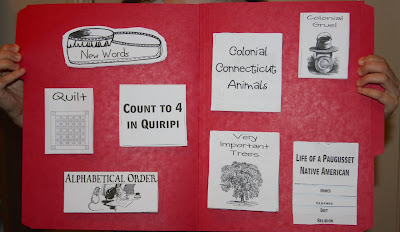 New Words
Quilt
COUNT TO 4
IN QUIRIPI
ALPHABETICAL ORDER
Colonial
Connecticut
Animals
Colonial
Gruel
Very
Important
Trees
LIFE OF A PAUGUSSET
NATIVE AMERICAN
DIET
RELIGION